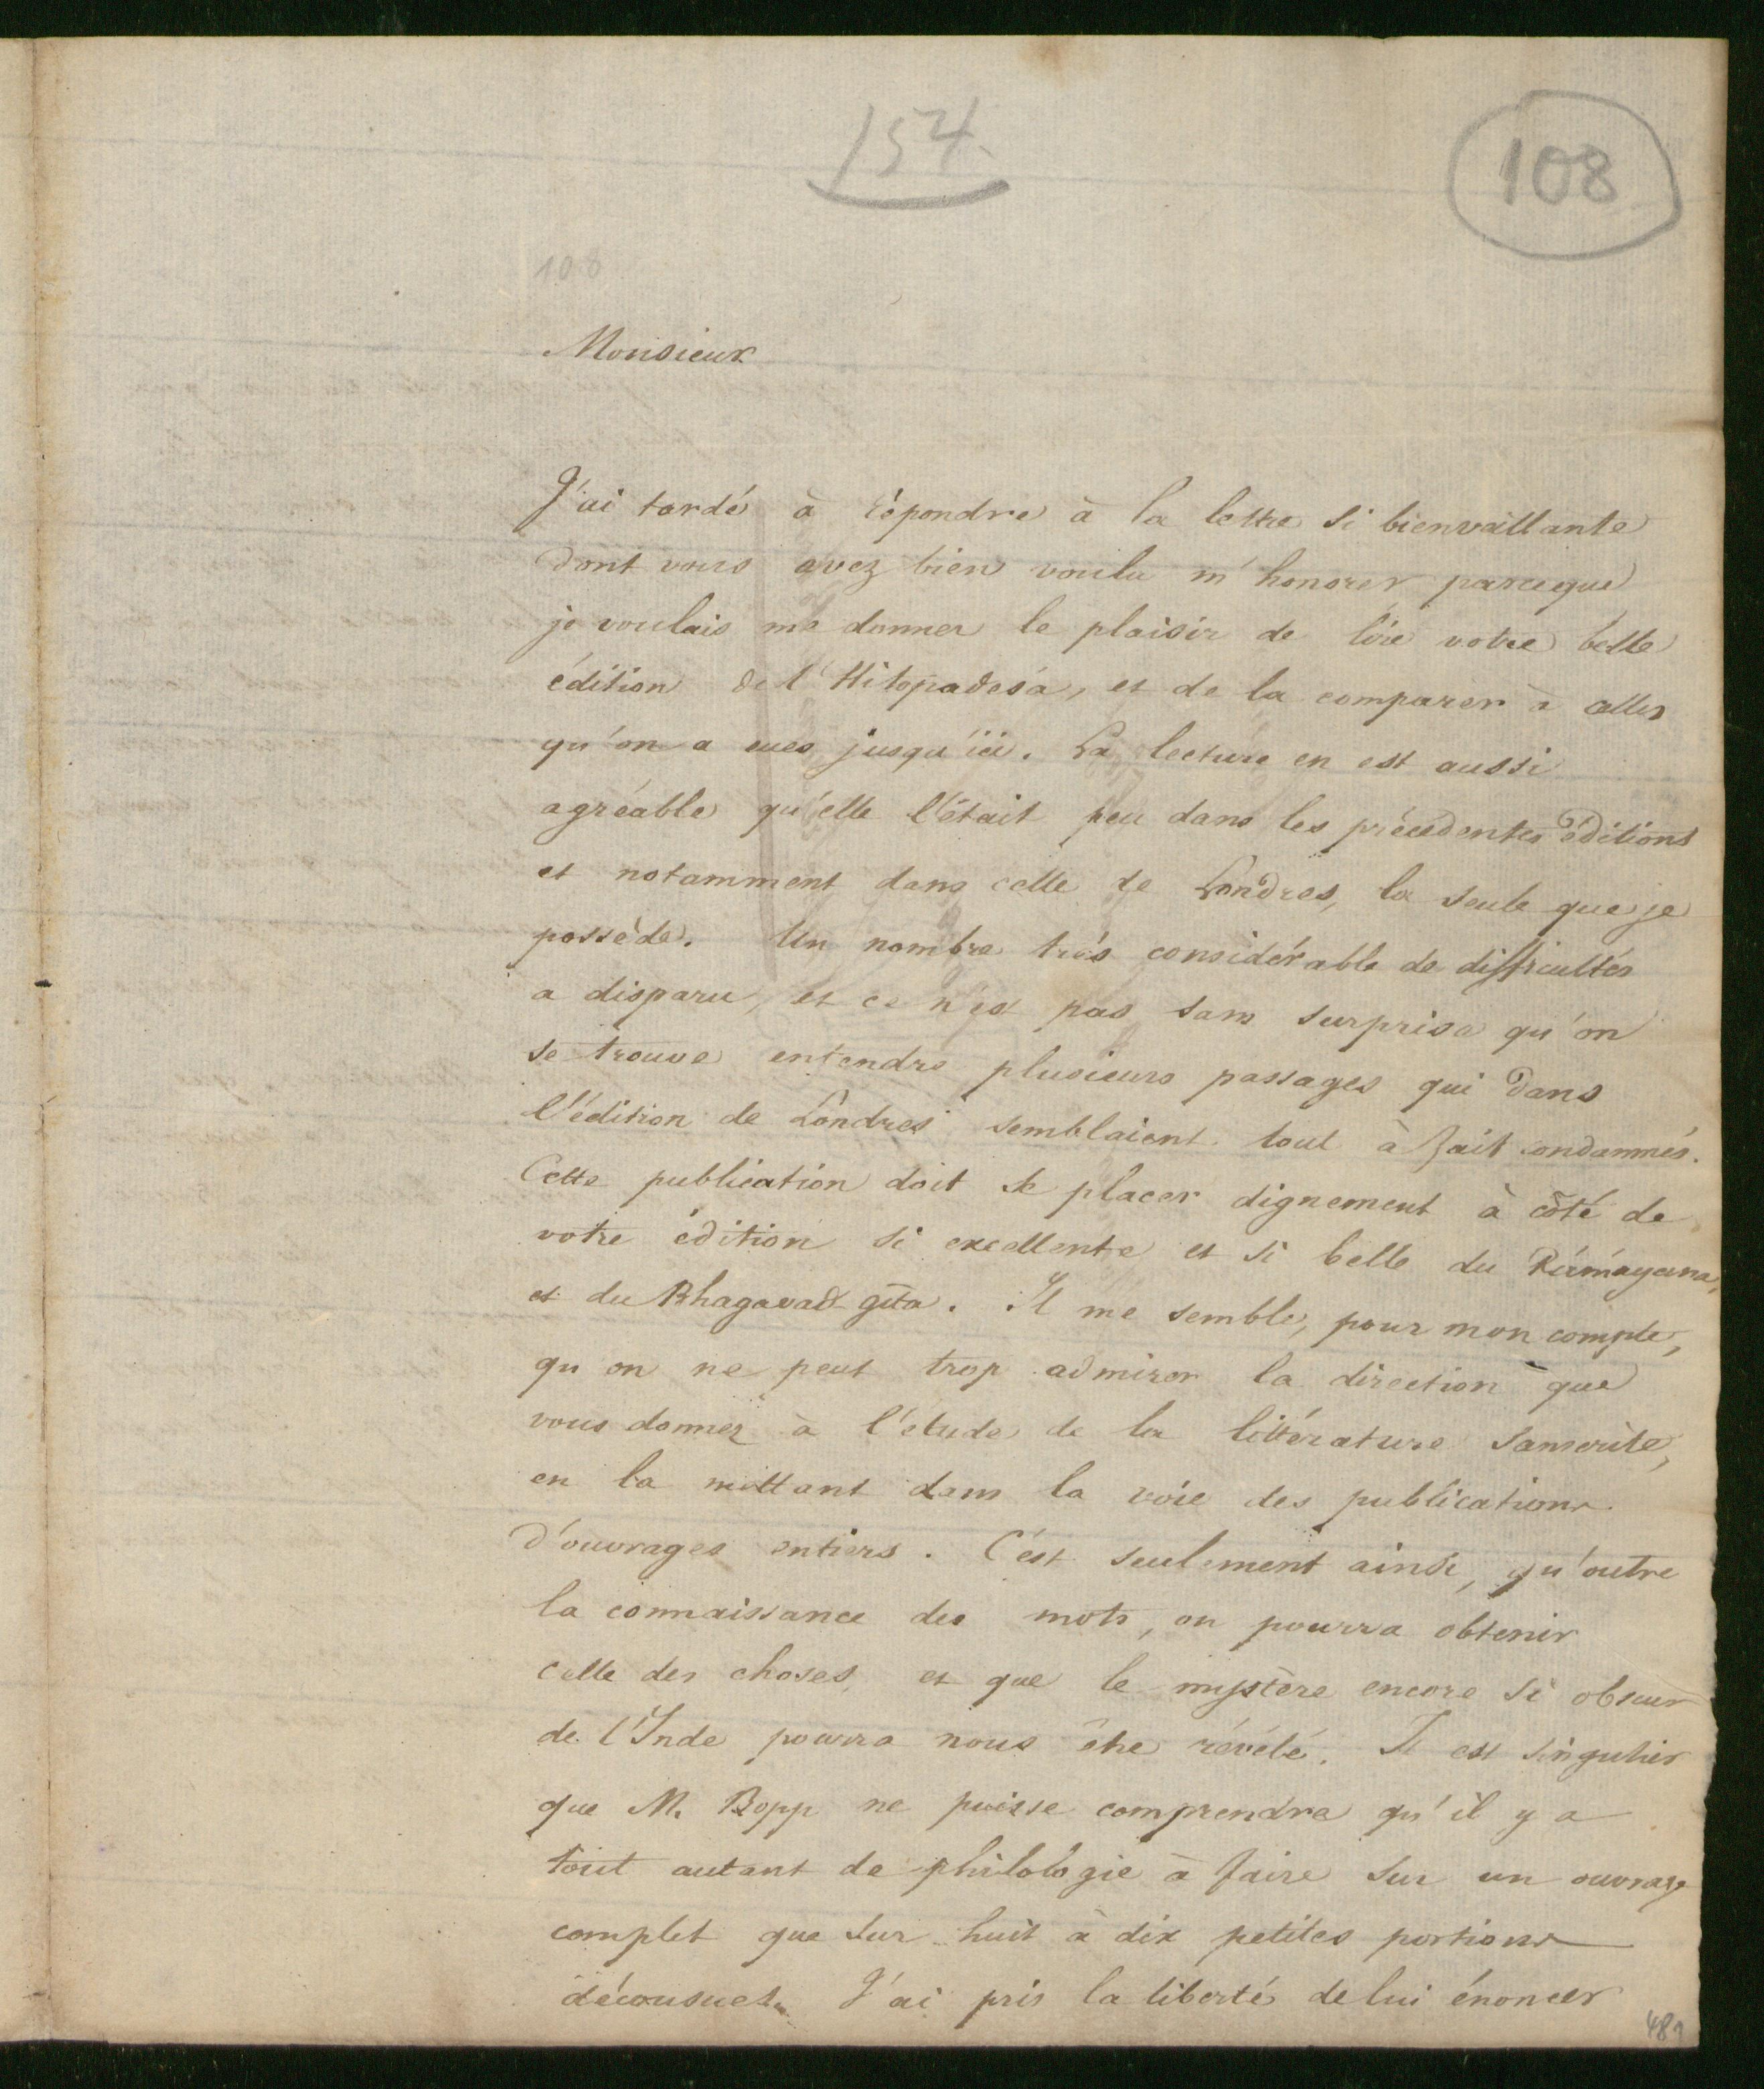 154.
108
108
Monsieur
J'ai tardé à répondre à la lettre si bienvaillante
dont vous avez bien voulu m'honorer parceque
je voulais me donner le plaisir de lire votre belle
édition de l'Hitopadesá, et de la comparer à celles
qu'on a eues jusqu'ici. La lecture en est aussi
agréable qu'elle l'était peu dans les précédentes éditions
et notamment dans celle de Londres, la seule que je
possède. Un nombre très considérable de difficultés
a disparu, et ce n'est pas sans surprise qu'on
se trouve entendre plusieurs passages qui dans
l'édition de Londres semblaient tout à fait condamnés.
Cette publication doit se placer dignement à côté de
votre édition si excellente et si belle du Râmâyana,
et du Bhagavad gîta. Il me semble, pour mon compte,
qu'on ne peut trop admirer la direction que
vous donnez à l'étude de la littérature sanscrite,
en la mettant dans la voie des publications
d'ouvrages entiers. C'est seulement ainsi, qu'outre
la connaissance des mots, on pourra obtenir
celle des choses, et que le mystère encore si obscur
de l'Inde pourra nous être révélé. Il est singulier
que M. Bopp ne puisse comprendre qu'il y a
tout autant de philologie à faire sur un ouvrage
complet que sur huit à dix petites portions
décousues. J'ai pris la liberté de lui énoncer
481